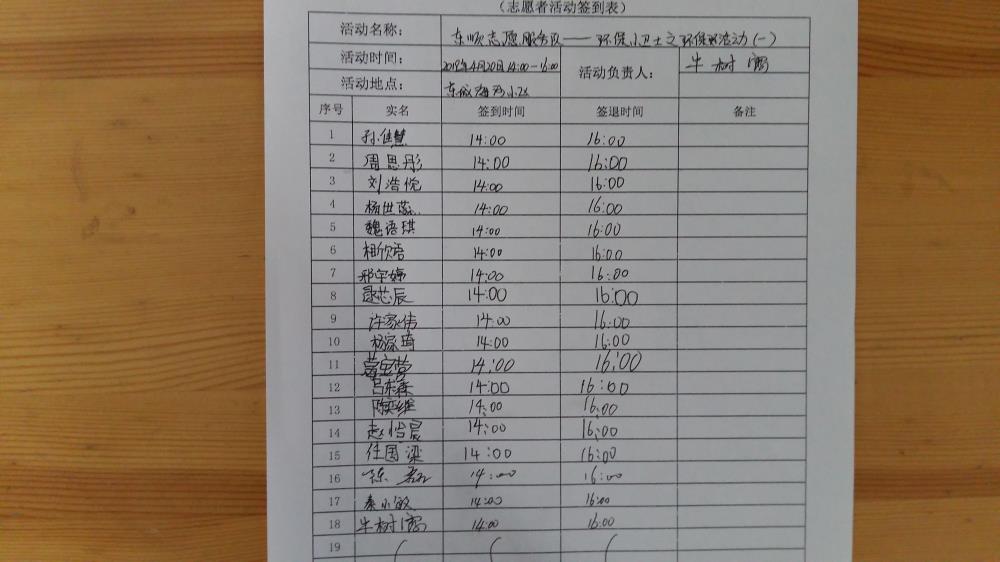 （志愿者活动签到表）
活动名称： 东顺志愿服务队——环保小卫士之环保活动(一)
活动时间： 2019年4月20日14:00-16:00 活动负责人： 牛树
活动地点： 东城小区
序号 实名 签到时间 签退时间 备注
1 孙佳慧 14:00 16:00
2 周思彤 14:00 16:00
3 刘浩悦 14:00 16:00
4 杨世蕊 14:00 16:00
5 魏语琪 14:00 16:00
6 相欣语 14:00 16:00
7 邢宇婷 14:00 16:00
8 芯辰 14:00 16:00
9 许家伟 14:00 16:00
10 杨家琦 14:00 16:00
11 14:00 16:00
12 吕东霖 14:00 16:00
13 陈奕维 14:00 16:00
14 赵怡晨 14:00 16:00
15 任国梁 14:00 16:00
16 陈磊 14:00 16:00
17 秦小敏 14:00 16:00
18 牛树 14:00 16:00
19